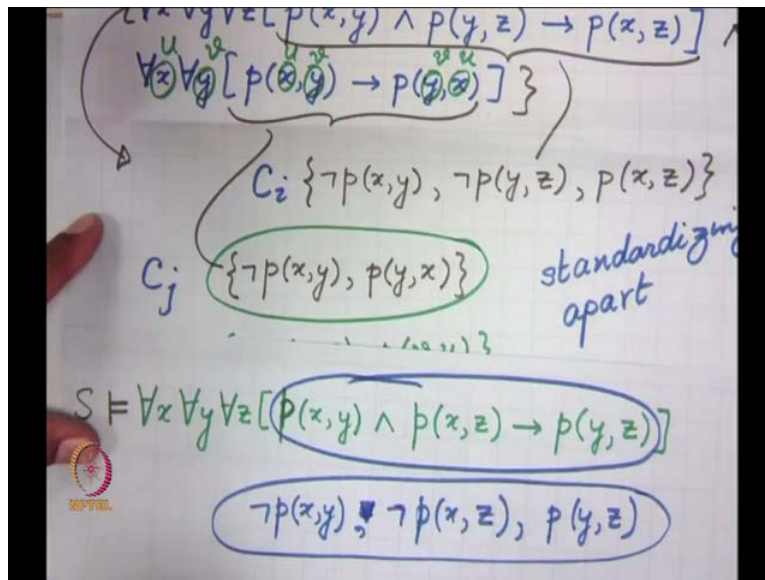 [∀x∀y∀z[p(x,y) ∧ p(y,z) → p(x,z)] ∧
u v u v v u
∀x∀y[p(x,y) → p(y,x)]}
Ci {¬p(x,y), ¬p(y,z), p(x,z)}
Cj {¬p(x,y), p(y,x)}
standardizing
apart
S ⊨ ∀x∀y∀z[p(x,y) ∧ p(x,z) → p(y,z)]
¬p(x,y), ¬p(x,z), p(y,z)
NPTEL